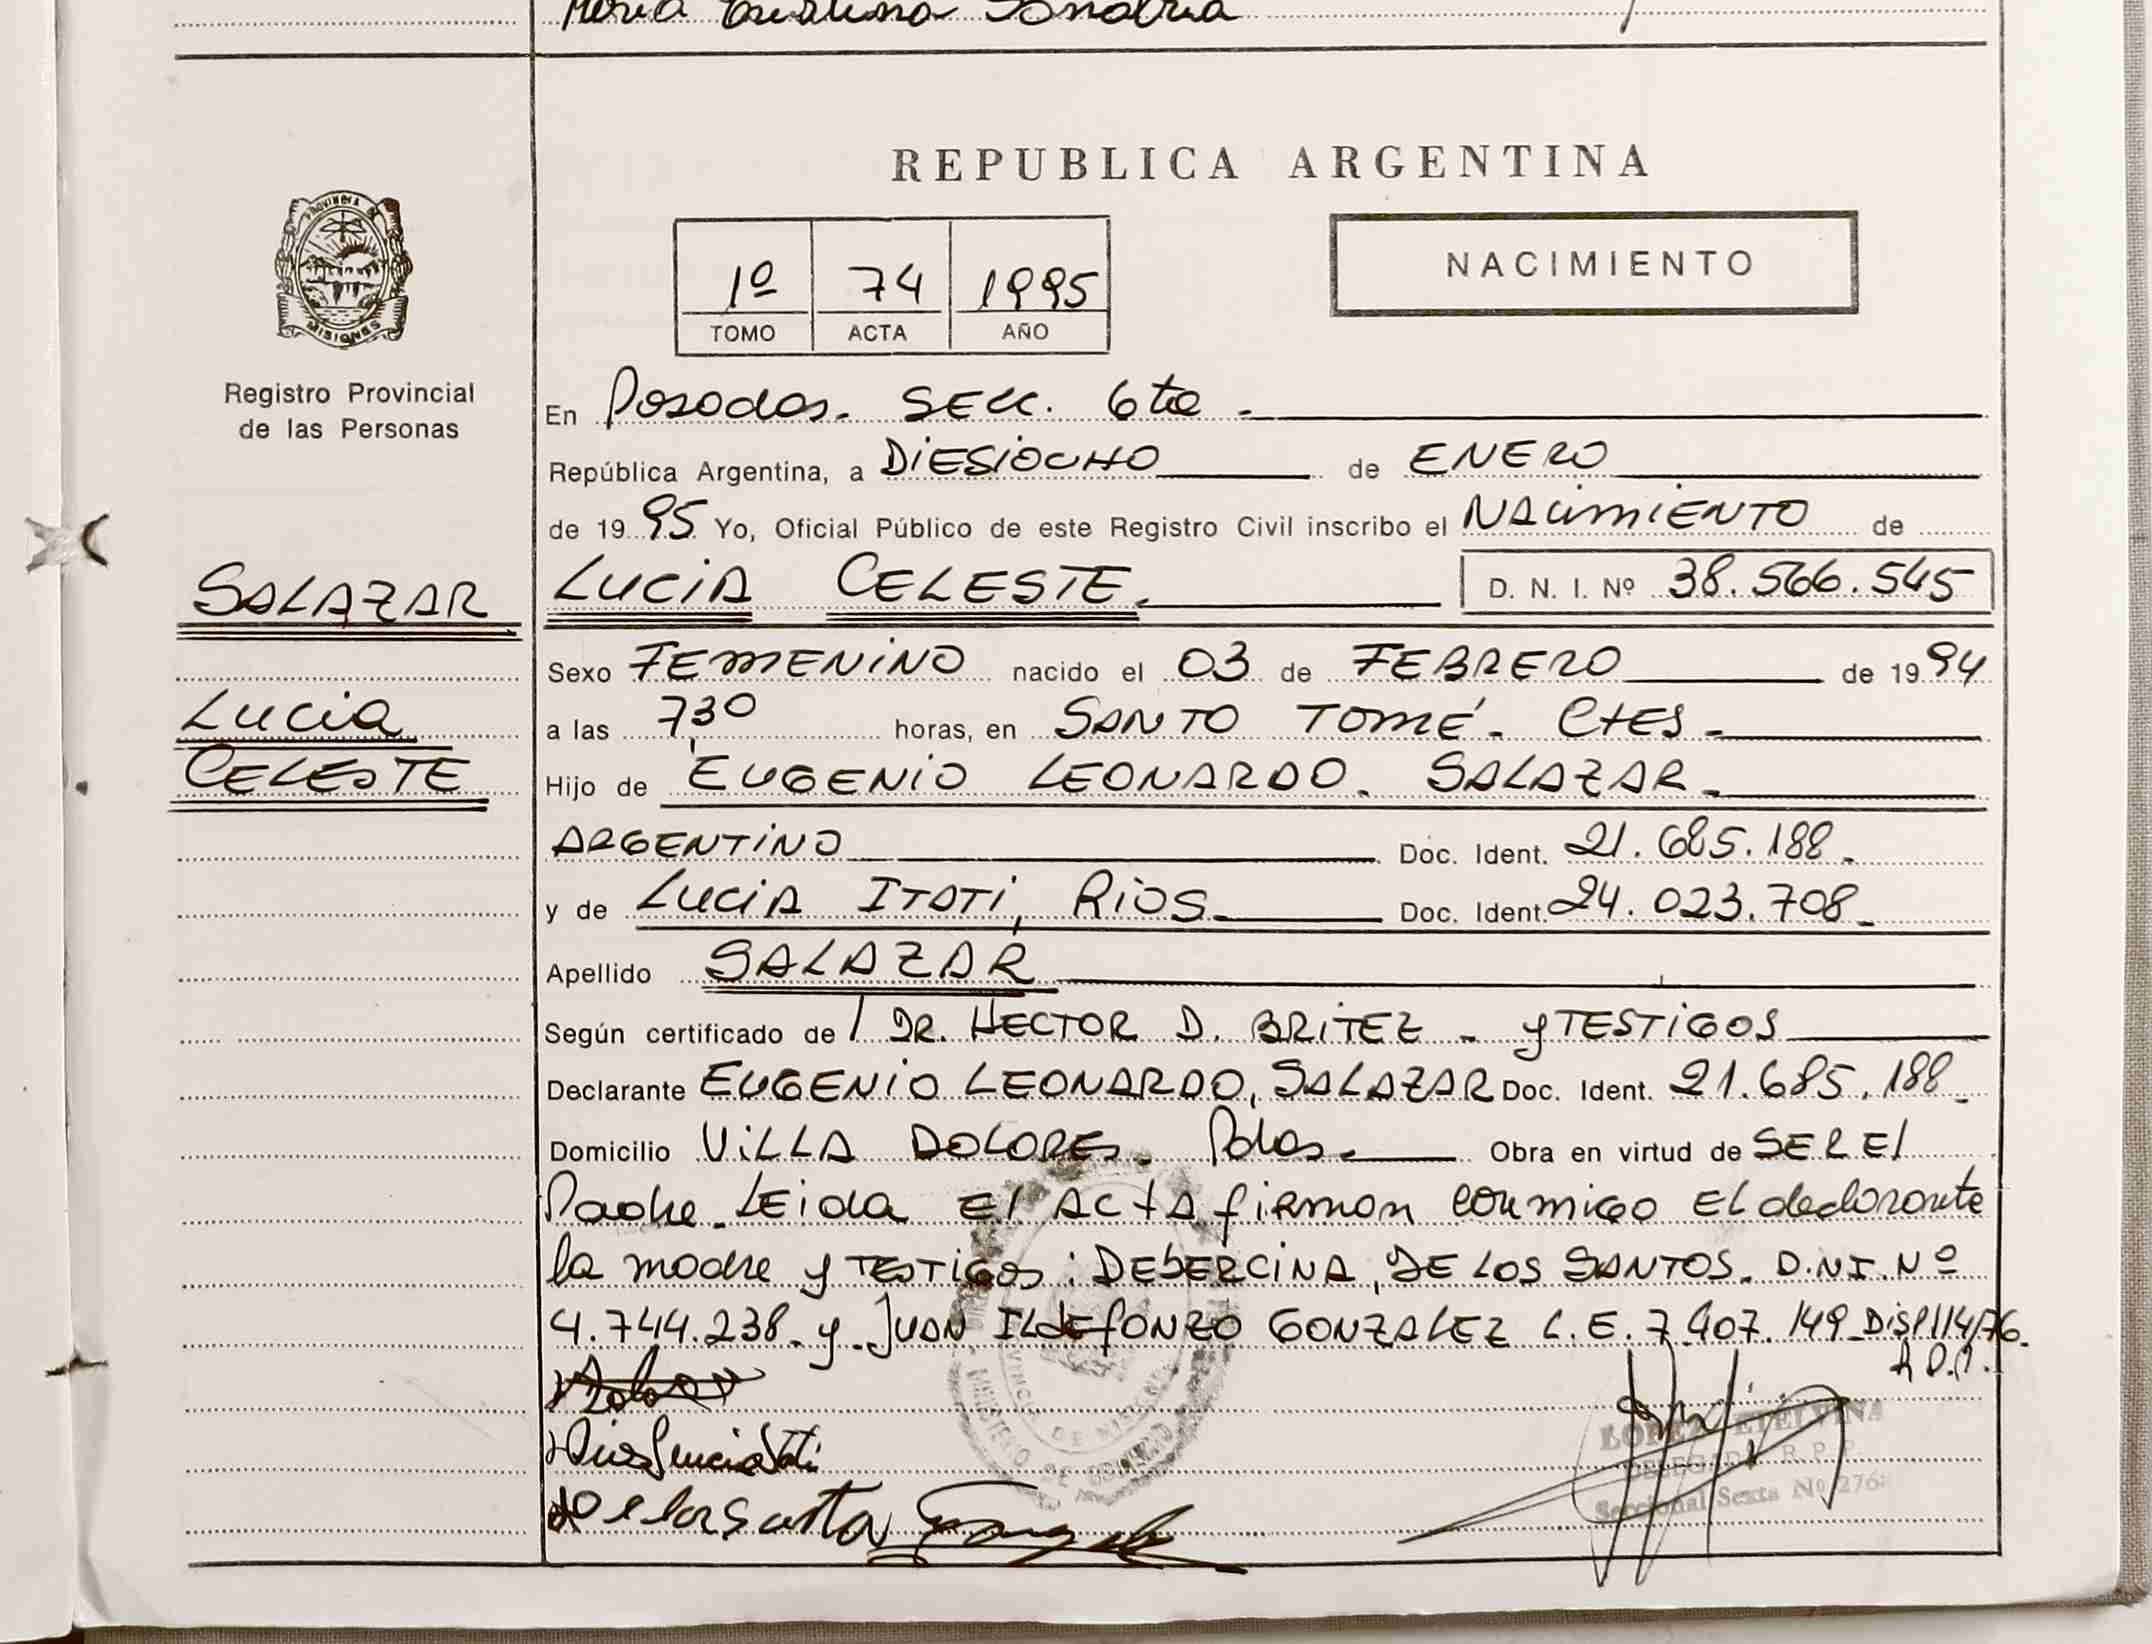 REPUBLICA ARGENTINA
PROVINCIA DE
MISIONES
Registro Provincial
de las Personas
1º 74 1995
TOMO ACTA AÑO
NACIMIENTO
En Posadas. SECC. 6ta.
República Argentina, a DIESIOCHO de ENERO
de 1995 Yo, Oficial Público de este Registro Civil inscribo el NACIMIENTO de
SALAZAR
LUCIA CELESTE. D. N. I. Nº 38.566.545
Lucia
CELESTE
Sexo FEMENINO nacido el 03 de FEBRERO de 1994
a las 7,30 horas, en SANTO TOMÉ. Ctes.
Hijo de EUGENIO LEONARDO. SALAZAR.
ARGENTINO Doc. Ident. 21.685.188.
y de LUCIA ITATI, RIOS. Doc. Ident. 24.023.708
Apellido SALAZAR
Según certificado de / DR. HECTOR D. BRITEZ - y TESTIGOS
Declarante EUGENIO LEONARDO, SALAZAR Doc. Ident. 21.685.188
Domicilio VILLA DOLORES. Pdas. Obra en virtud de SER El
Padre. LEida El ACtA firman conmigo El declarante
la madre y TESTIGOS: DEBERCINA, DE LOS SANTOS. D.N.I. Nº
4.744.238. y JUAN ILdEfONZO GONZALEZ L.E. 7.407.149 Disp 114/76
Rios Lucia Itati
LOPEZ ETELVINA
DELEGADA R. P. P.
Seccional Sexta Nº 276